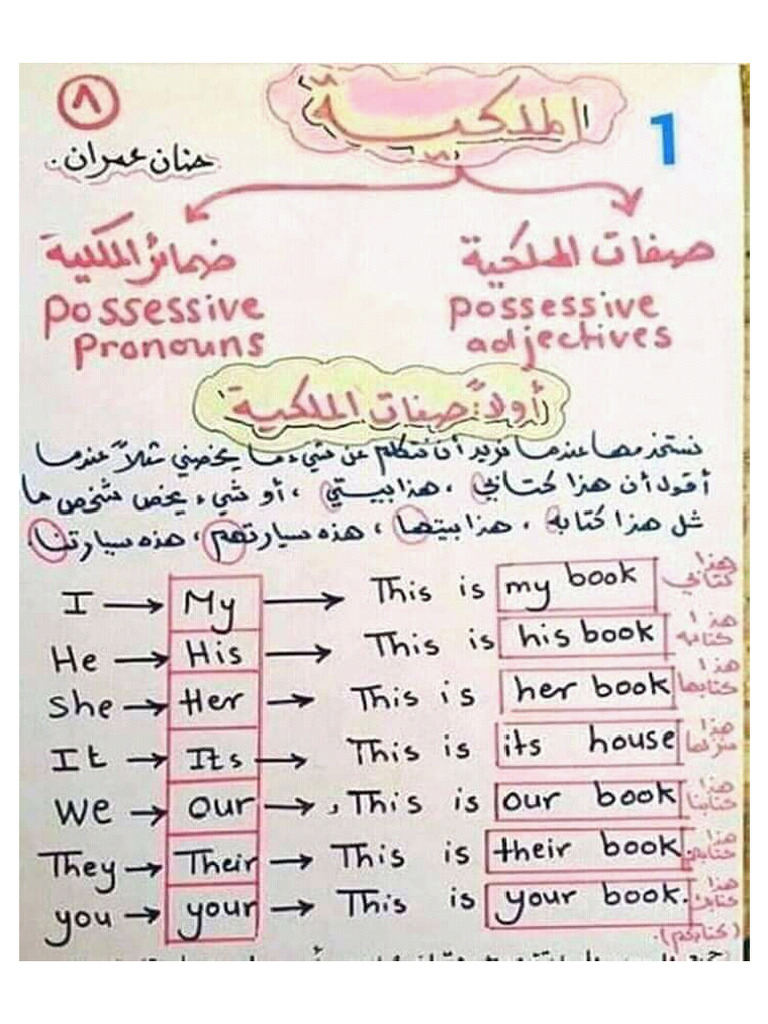 ٨
الملكيّة
1
حنان عمران.
صفات الملكية
possessive
adjectives
ضمائر الملكية
possessive
Pronouns
أولاً: صفات الملكية
نستخدمها عندما نريد أن نتكلم عن شيء ما يخصني مثلاً عندما
أقول أن هذا كتابي ، هذا بيتي ، أو شيء يخص شخص ما
مثل هذا كتابه ، هذا بيتها ، هذه سيارتهم ، هذه سيارتنا.
I → My → This is my book هذا كتابي
He → His → This is his book هذا كتابه
She → Her → This is her book هذا كتابها
It → Its → This is its house هذا منزلها
We → our → This is our book هذا كتابنا
They → Their → This is their book هذا كتابهم
you → your → This is your book. هذا كتابك
(كتابكم).